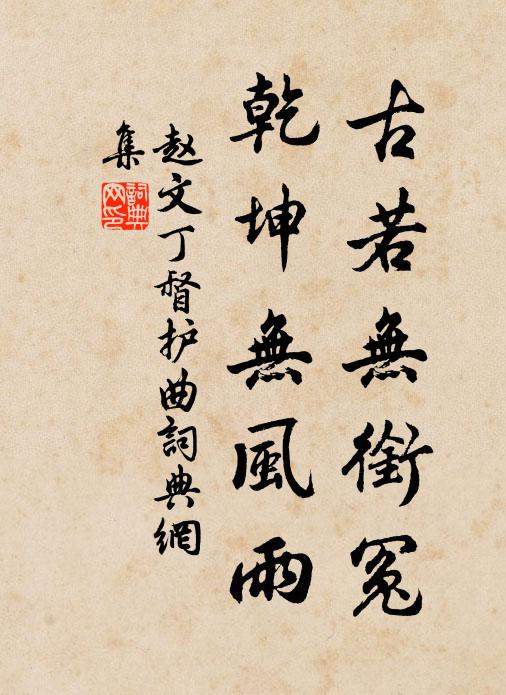 古若無銜冤
乾坤無風雨
赵文丁督护曲詞典網
集
詞典
网印